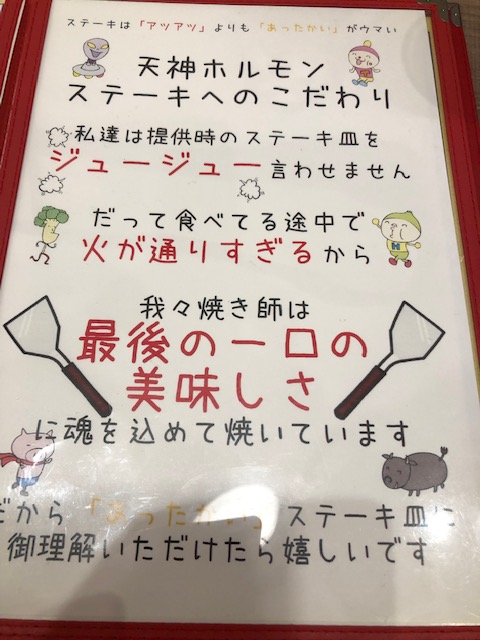 ステーキは「アツアツ」よりも「あったかい」がウマい
天神ホルモン
ステーキへのこだわり
私達は提供時のステーキ皿を
ジュージュー言わせません
だって食べてる途中で
火が通りすぎるから
我々焼き師は
最後の一口の
美味しさ
に魂を込めて焼いています
だから「あったかい」ステーキ皿に
御理解いただけたら嬉しいです
H